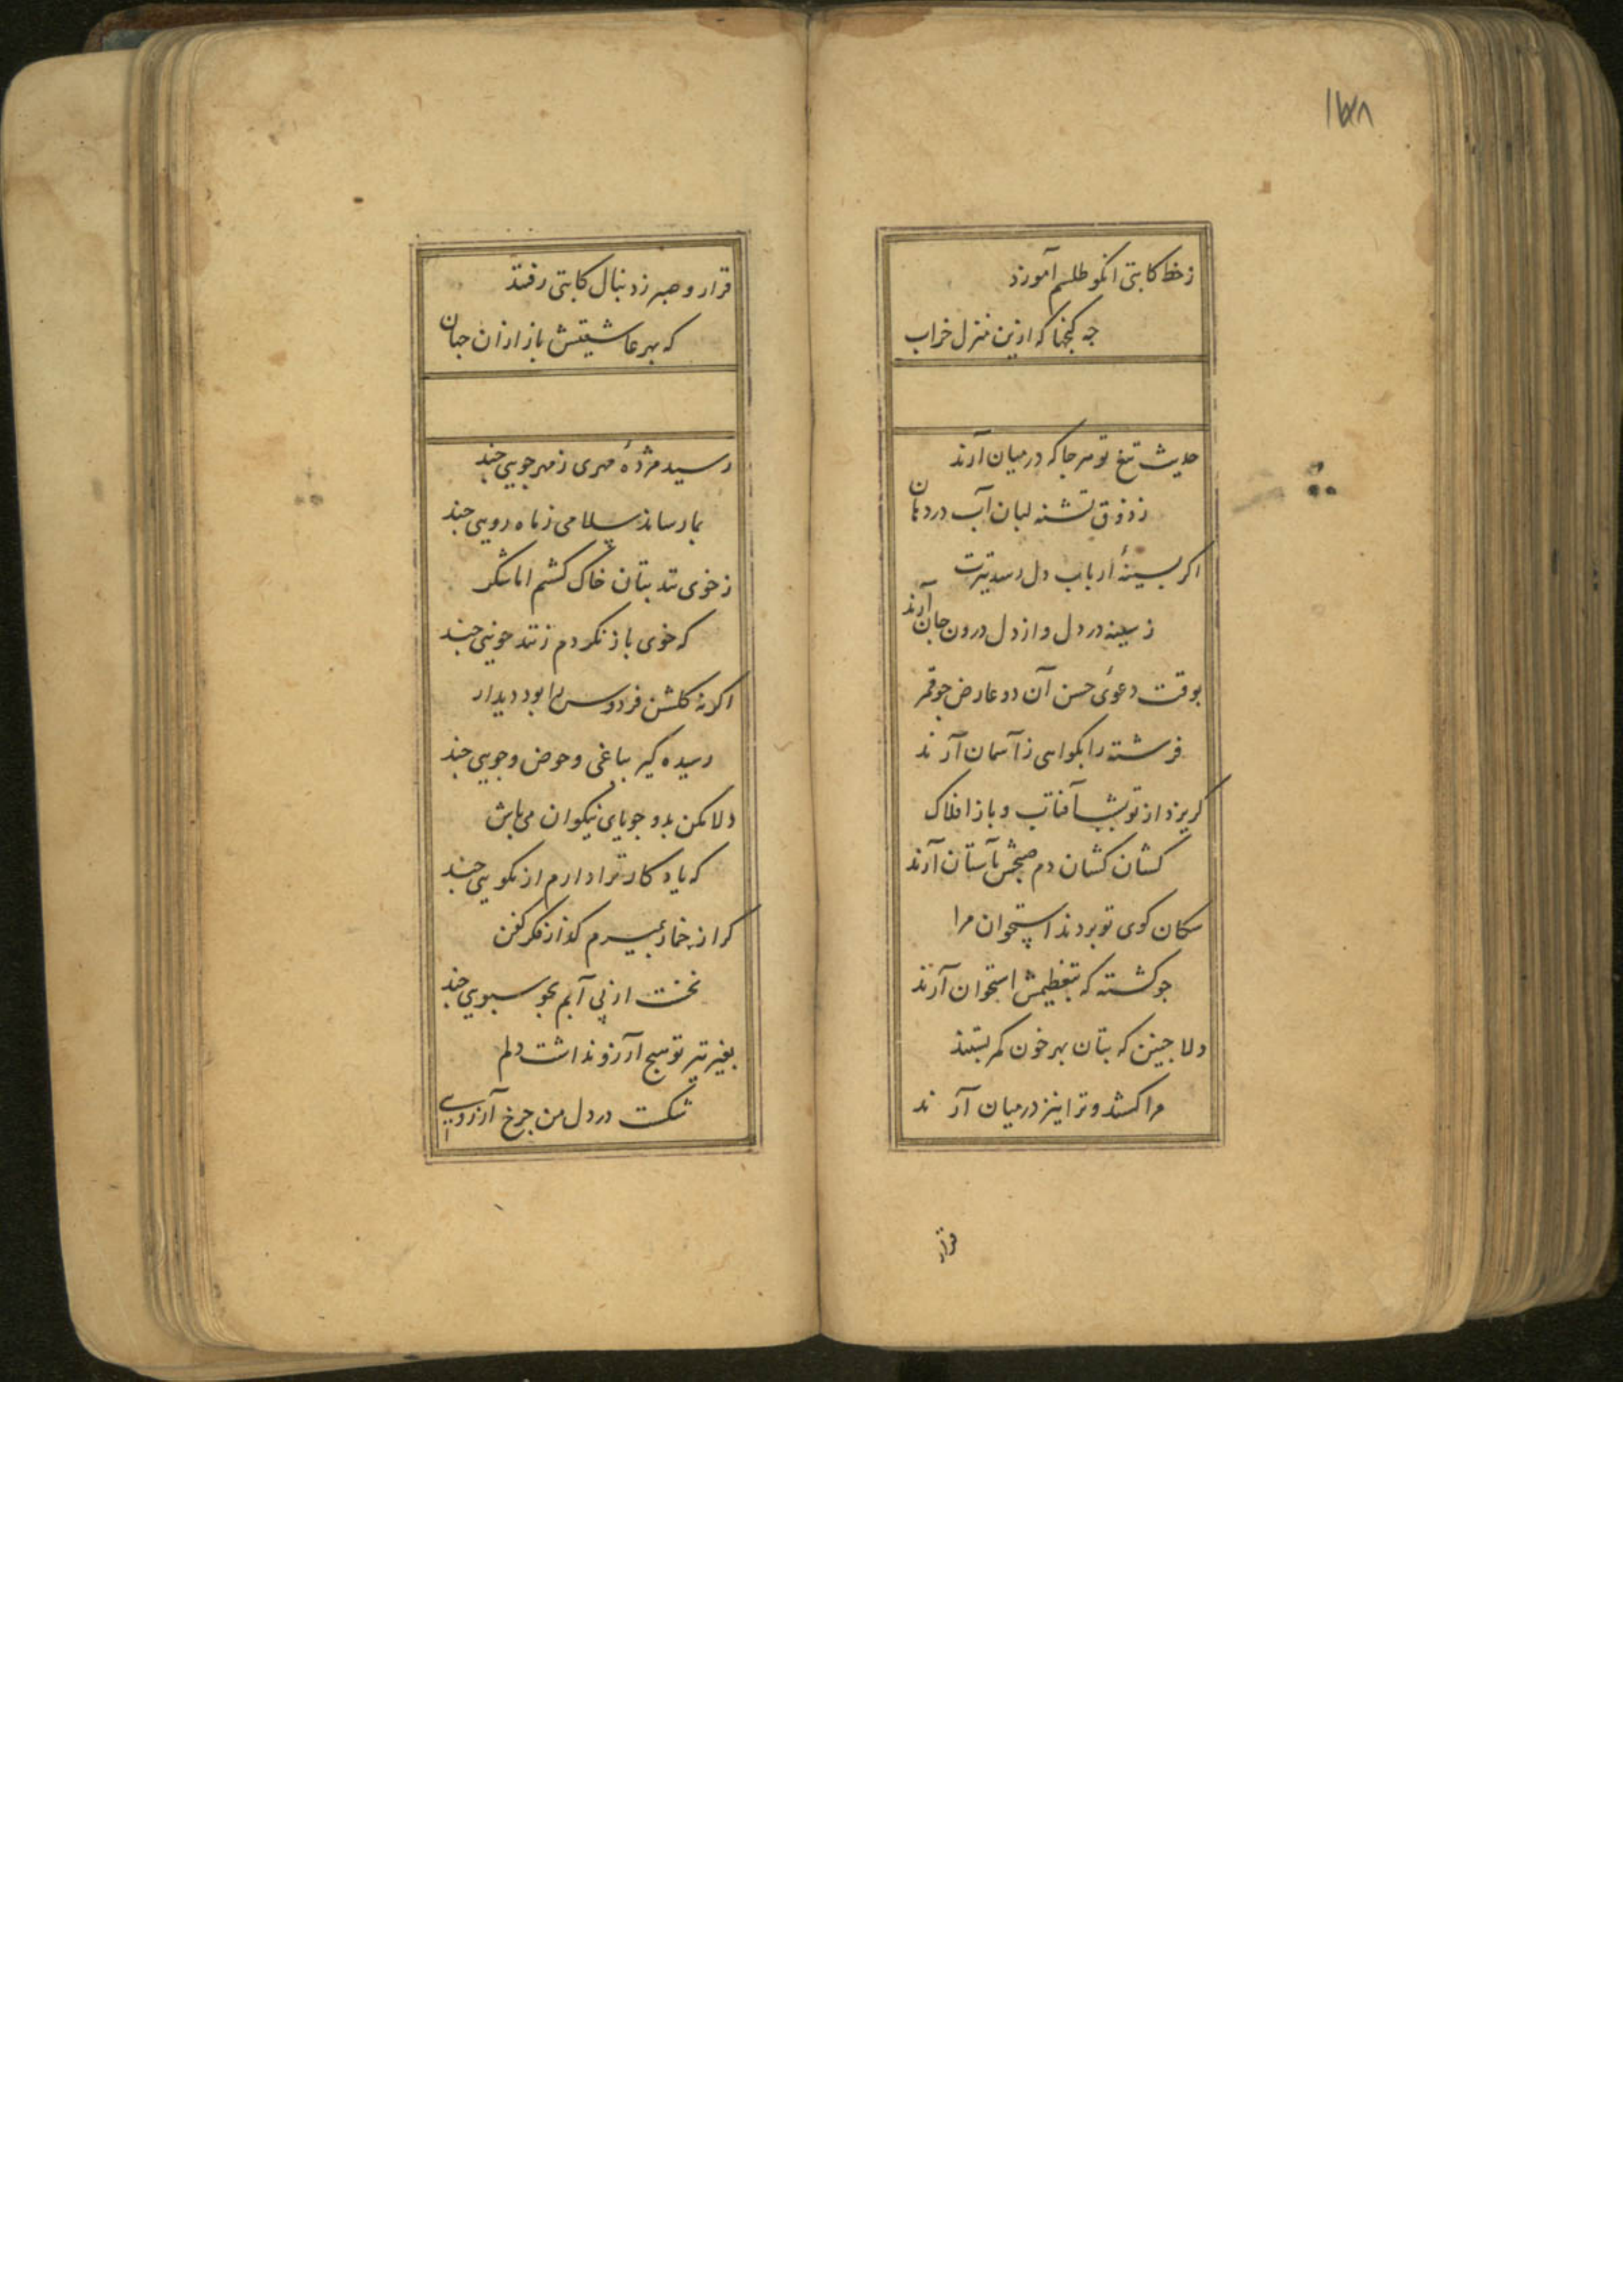 ۱۷۸
ز خط کاتبی انکو طلسم آموزد
جه کنجها که ازین منزل خراب
حدیث تیغ تو هر جا که در میان آرند
ز ذوق تشنه لبان آب در دهان
اکر بسینهٔ ارباب دل رسد تیرت
ز سینه در دل و از دل درون جان آرند
بوقت دعوئ حسن آن دو عارض جو قمر
فرشته را بکواهی ز آسمان آرند
کریزد از تو بشب آفتاب و باز افلاک
کشان کشان دم صبحش بآستان آرند
سکان کوی تو بردند استخوان مرا
جو کشته که بتعظیمش استخوان آرند
دلا جنین که بتان بهر خون کمر بستند
مرا کشند و ترا نیز در میان آرند
قرار
قرار و صبر ز دنبال کاتبی رفتند
که بهر عاشقیتش باز از ان جهان
رسید مژدهٔ مهری ز مهرجویی جند
بما رساند سلامی ز ماه رویی جند
ز خوی تند بتان خاک کشتم اما شکر
که خوی باز نکردم ز تند خویی جند
اکر نه کلشن فردوس را بود دیدار
رسیده کیر بباغی و حوض و جویی جند
دلا مکن بد و جویای نیکوان می باش
که یادکار ترا دارم از نکویی جند
کر از خمار بمیرم کذار فکر کفن
نخست از پی آبم بجو سبویی جند
بغیر تیر تو هیج آرزو نداشت دلم
شکست در دل من جرخ آرزویی